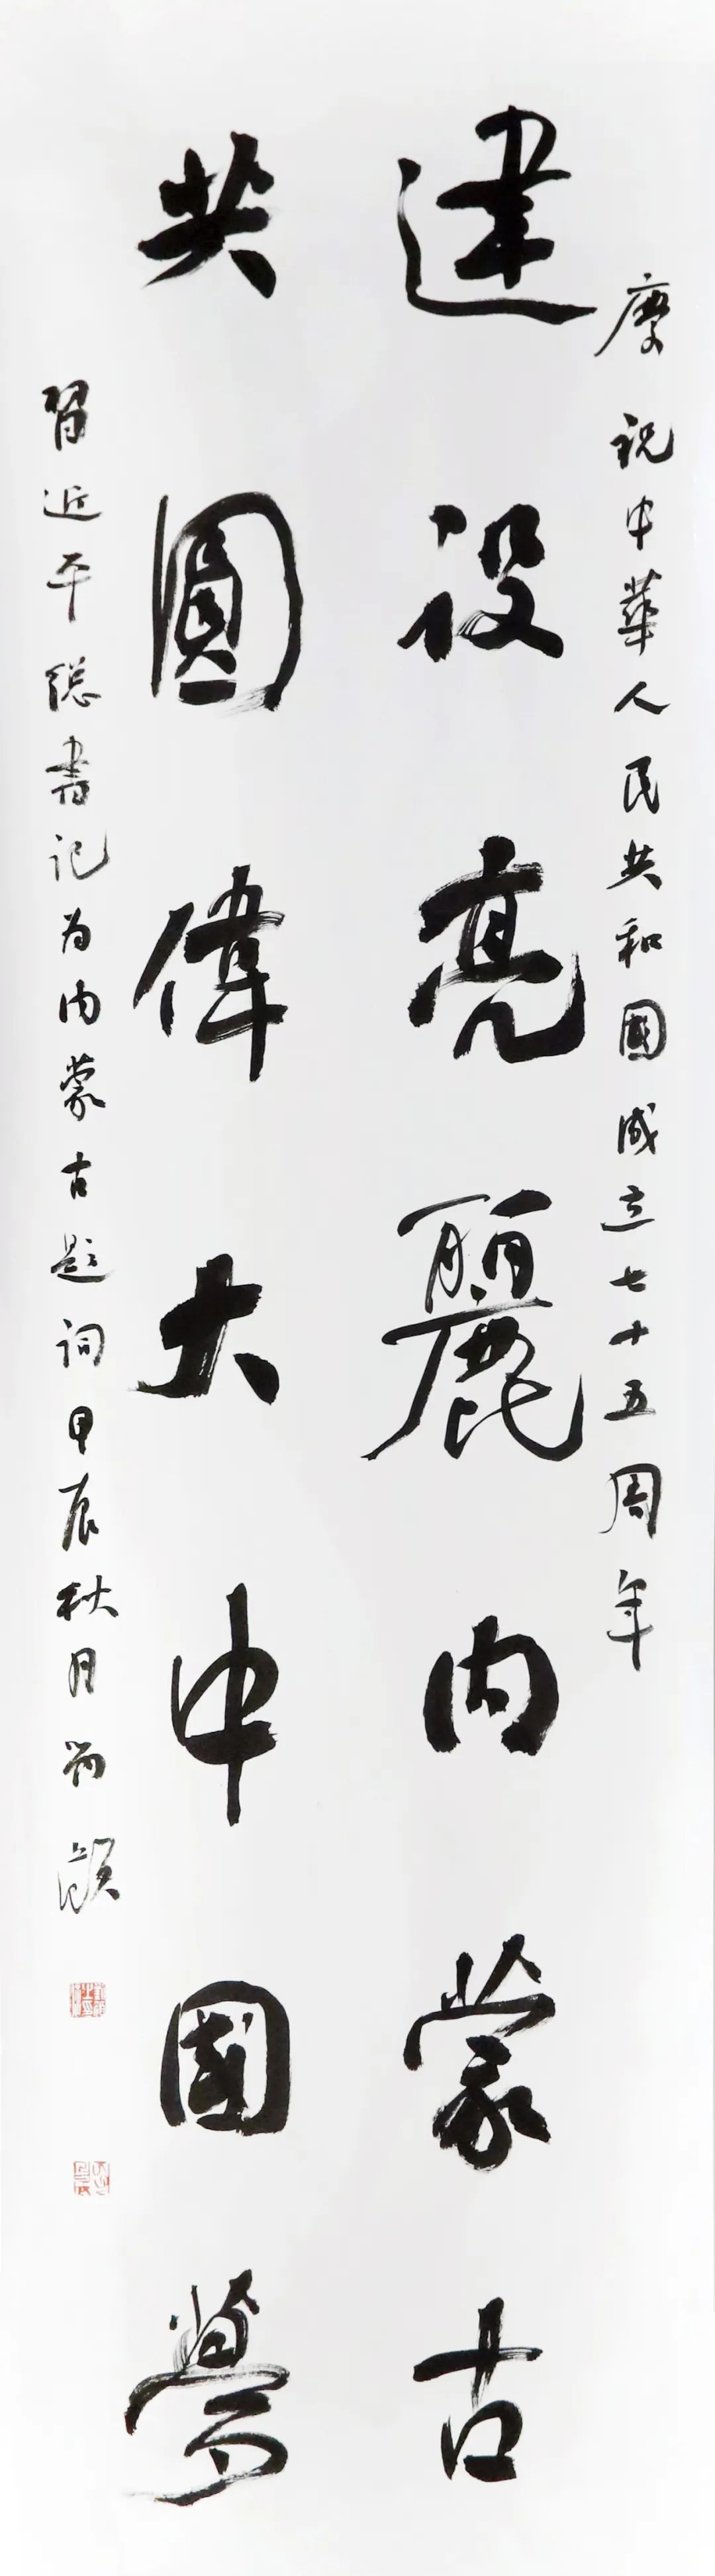 慶祝中華人民共和國成立七十五周年
建設亮麗內蒙古
共圓偉大中國夢
習近平総書记为内蒙古題詞甲辰秋月